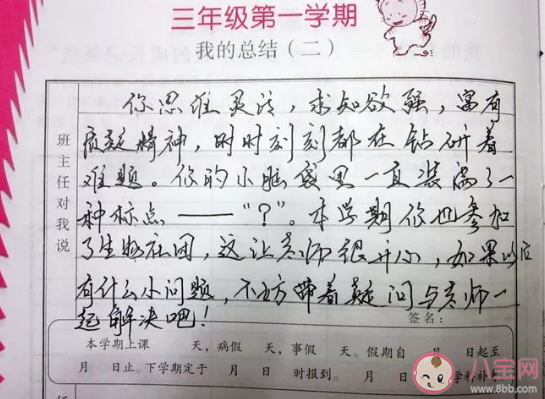 三年级第一学期
我的总结（二）
班主任对我说
你思维灵活，求知欲强，富有
质疑精神，时时刻刻都在钻研着
难题。你的小脑袋里一直装满了一
种标点——“？”。本学期你也参加
了生物社团，这让老师很开心，如果以后
有什么小问题，不妨带着疑问与老师一
起解决吧！
签名：
本学期上课 天，病假 天，事假 天。假期自 月 日起至
月 日止。下学期定于 月 日 时报到。 月 日
八宝网
www.8bb.com